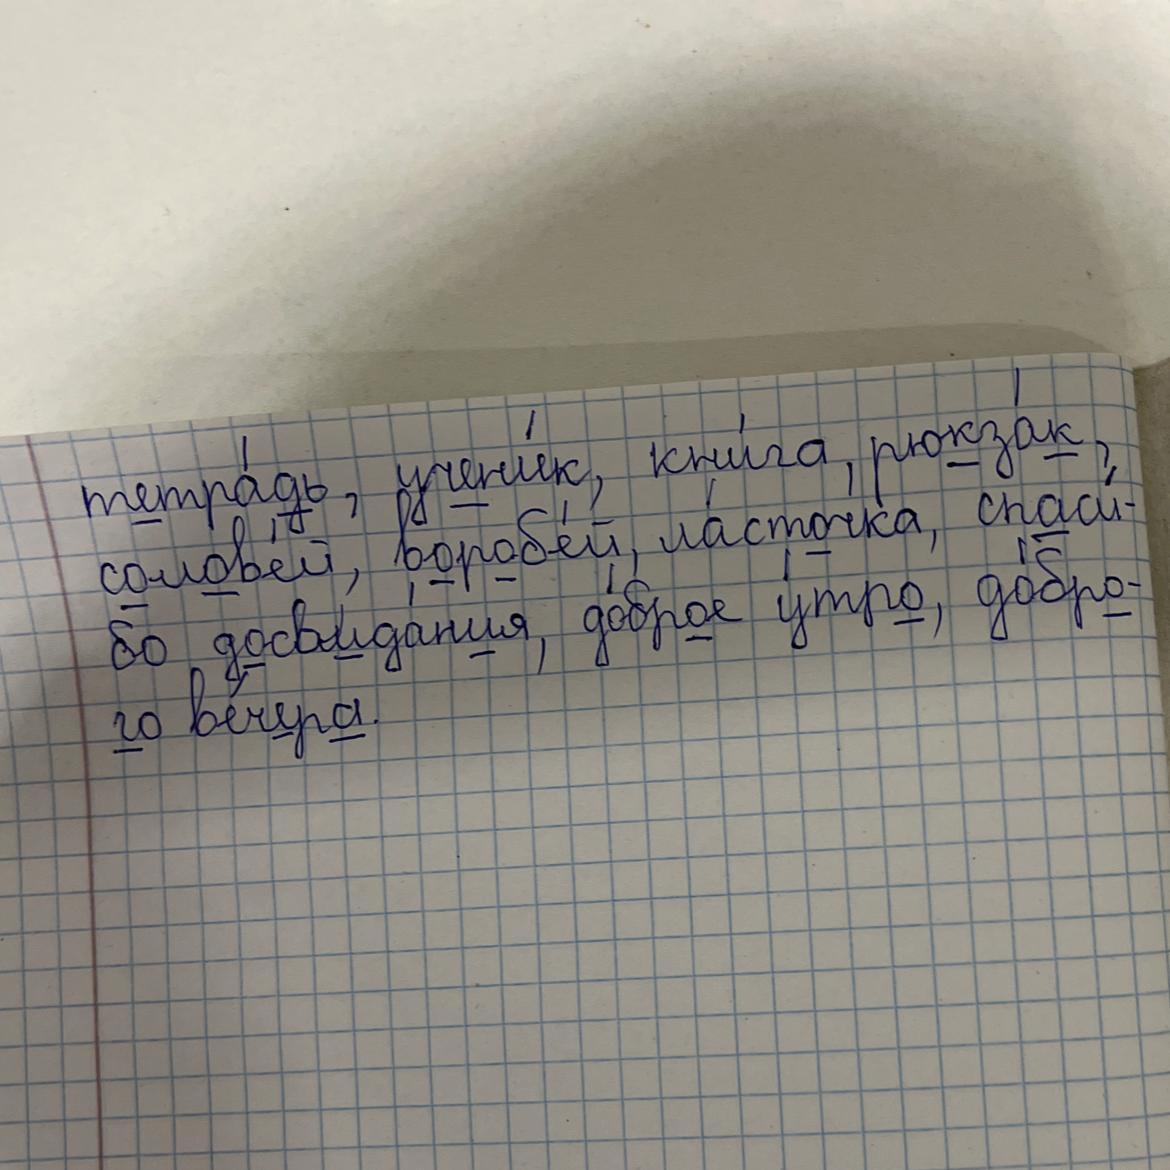 тетрадь, ученик, книга, рюкзак,
соловей, воробей, ласточка, спаси-
бо досвидания, доброе утро, добро-
го вечера.